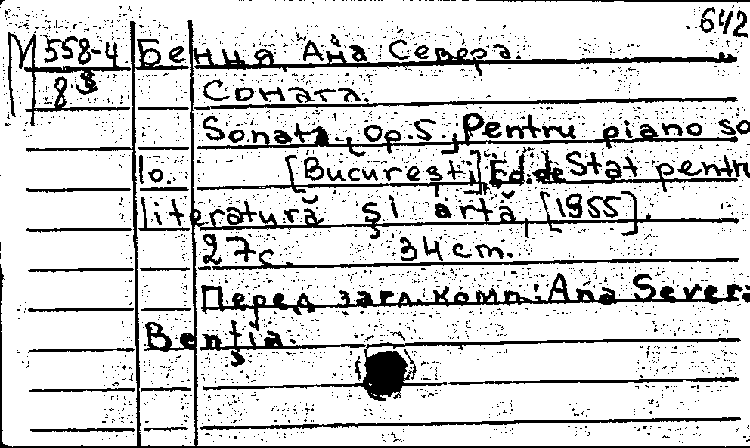 642
М 558-4 Бенция, Ана Севера.
8³ Соната.
Sonata, Op. 5, Pentru piano so
lo. [Bucureşti], Ed. de Stat pentru
literatură şi artă, [1955].
27 с. 34 cm.
Перед загл. комп.: Ana Severa
Benţia.